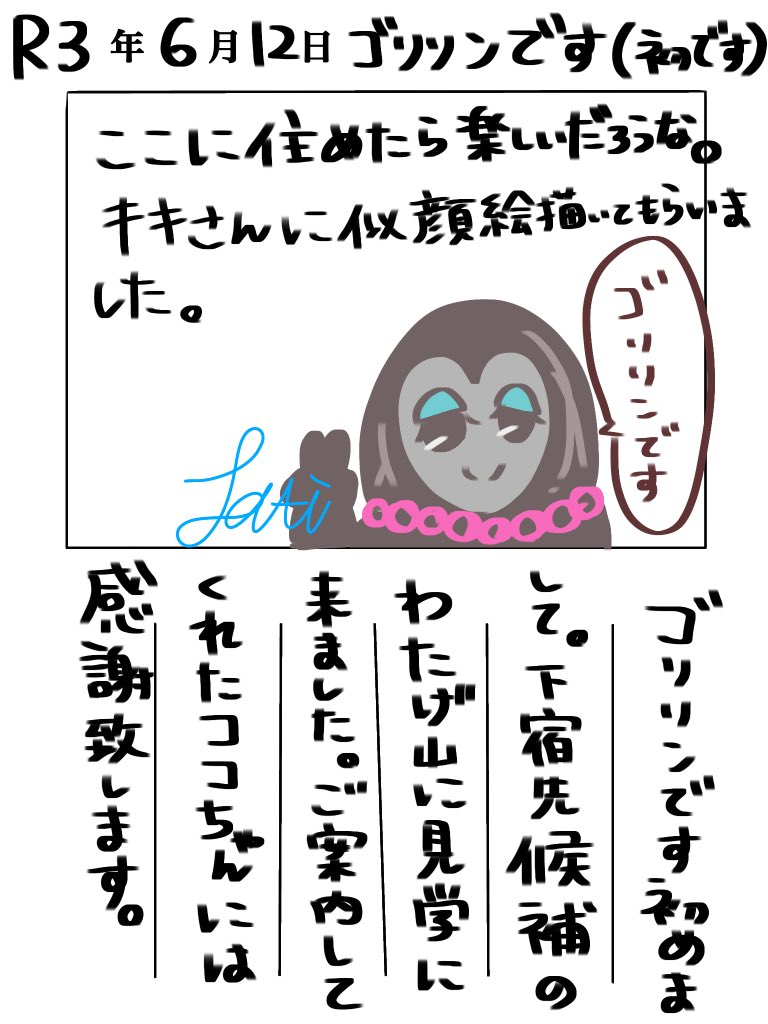 R3年6月12日ゴリリンです(初です)
ここに住めたら楽しいだろうな。
キキさんに似顔絵描いてもらいま
した。
ゴリリンです
Lati
ゴリリンです初めま
して。下宿先候補の
わたげ山に見学に
来ました。ご案内して
くれたココちゃんには
感謝致します。